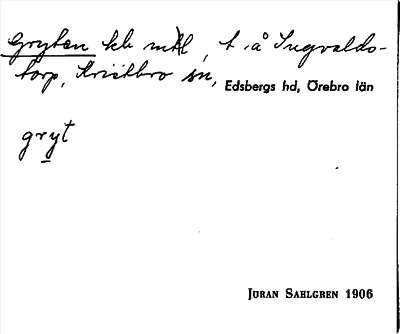 Gryten kb mtl, t. å Ingvalds-
torp, Kvistbro sn, Edsbergs hd, Örebro län
gryt
JÖRAN SAHLGREN 1906